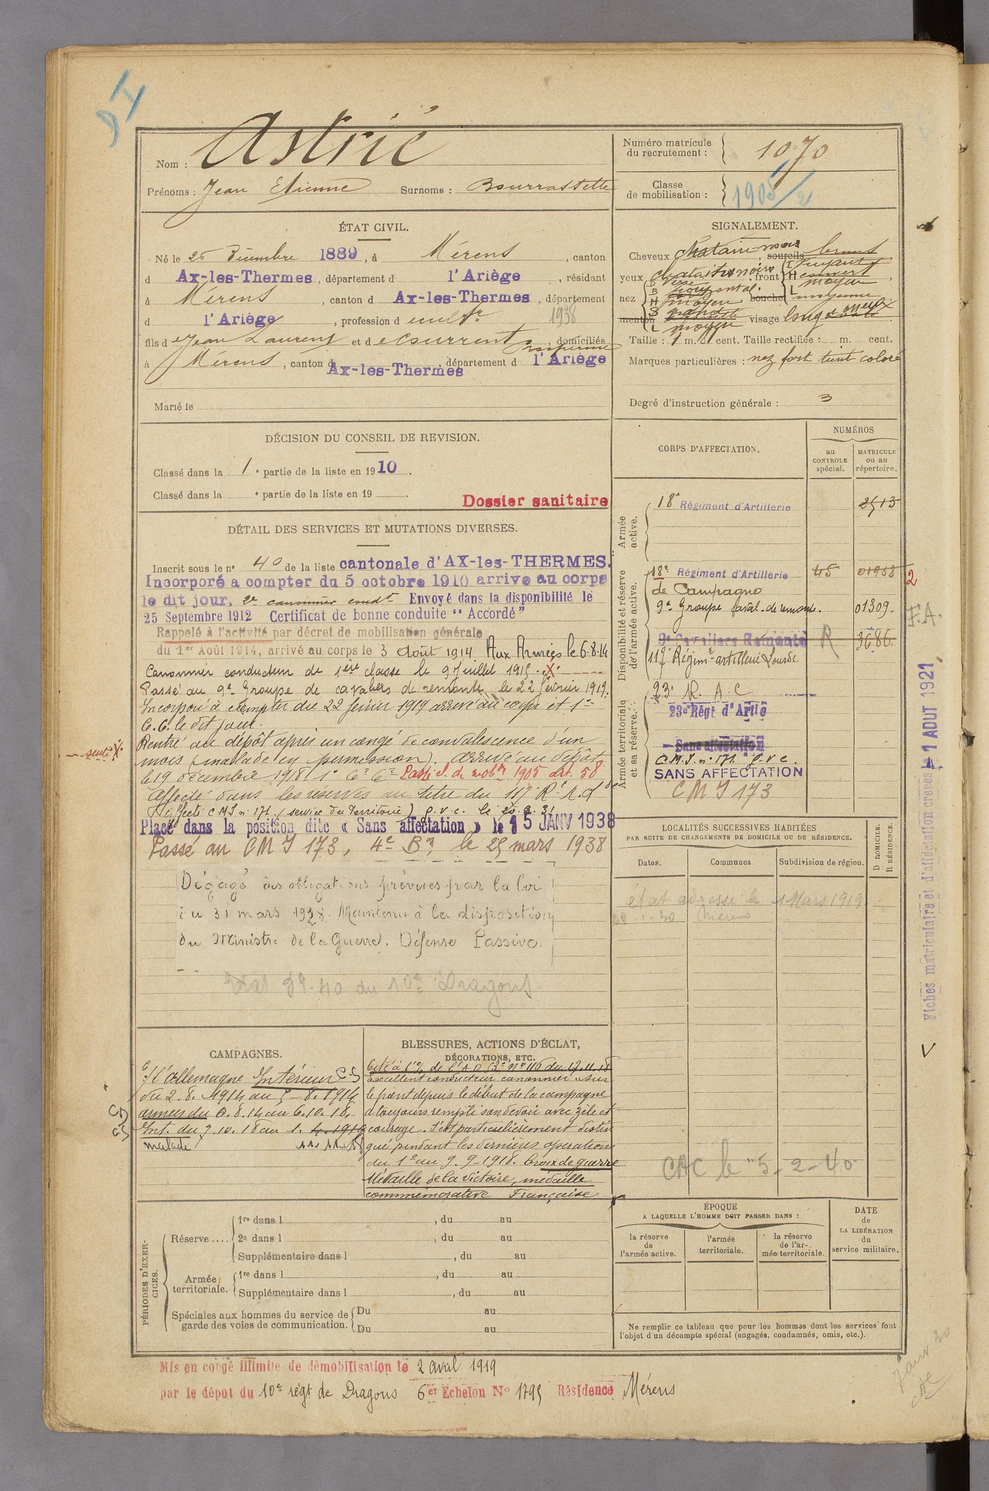 Nom : Astrié
Prénoms : Jean Etienne Surnoms : Bourrassette
Numéro matricule du recrutement : 1070
Classe de mobilisation :
ÉTAT CIVIL.
Né le 25 Décembre 1889, à Mérens, canton
d Ax-les-Thermes, département d l'Ariège, résidant
à Mérens, canton d Ax-les-Thermes, département
d l'Ariège, profession d cultr 1938
fils d e Jean Laurent et d e domiciliés
à Mérens, canton d Ax-les-Thermes département d l'Ariège
Marié le
SIGNALEMENT.
Cheveux chatain noir sourcils bruns
yeux chatains noirs front
nez bouche moyenne
menton visage long
Taille : 1 m. cent. Taille rectifiée : m. cent.
Marques particulières : nez fort teint coloré
Degré d'instruction générale : 3
DÉCISION DU CONSEIL DE REVISION.
Classé dans la 1e partie de la liste en 1910.
Classé dans la e partie de la liste en 19
Dossier sanitaire
DÉTAIL DES SERVICES ET MUTATIONS DIVERSES.
Inscrit sous le n° 40 de la liste cantonale d'AX-les-THERMES.
Incorporé a compter du 5 octobre 1910 arrivé au corps
le dit jour, 2e canonnier condt Envoyé dans la disponibilité le
25 Septembre 1912 Certificat de bonne conduite "Accordé"
Rappelé à l'activité par décret de mobilisation générale
du 1er Août 1914, arrivé au corps le 3 Août 1914 Aux Armées le 6.8.14
Canonnier conducteur de 1ère classe le 9 Juillet 1915. X
Passé au 9e Groupe de cavaliers de remonte le 22 février 1919.
Incorporé à compter du 22 février 1919 arrivé au corps et 1re
Cie le dit jour.
Rentré au dépôt après un congé de convalescence d'un
mois (malade en permission). arrivé au dépôt
le 19 décembre 1918 1e Cie Passé cl. de mobon 1905 art. 58
Affecté dans les réserves au titre du 117 R.A.Lde
Affecté C.M.I n° 171 (service du Territoire) G.V.C.
Placé dans la position dite « Sans affectation » le 15 JANV 1938
Passé au CMI 173, 4e Bn le 25 mars 1938
Dégagé des obligations prévues par la loi
du 31 mars 1928. Maintenu à la disposition
du Ministre de la Guerre. Défense Passive.
Etat 39-40 du 10e Dragons
CORPS D'AFFECTATION.
NUMÉROS
au CONTROLE spécial.
MATRICULE ou au répertoire.
Armée active.
18e Régiment d'Artillerie 2513
Disponibilité et réserve de l'armée active.
18e Régiment d'Artillerie 45 01908 2
de Campagne
9e Groupe caval. de remonte. 01309.
9e Cavaliers Remonte R 3686
117 Régimt artillerie lourde
F.A.
Armée territoriale et sa réserve.
23e R.A.C
23e Régt d'Artie
Sans affectation
C.M.I. n° 171 G.V.C.
SANS AFFECTATION
CMI 173
LOCALITÉS SUCCESSIVES HABITÉES
PAR SUITE DE CHANGEMENTS DE DOMICILE OU DE RÉSIDENCE.
Dates. Communes. Subdivision de région. D DOMICILE. R RÉSIDENCE.
état adressé le 1 Mars 1919
Mérens
CAC le 5-2-40
Fiches matriculaire et d'affectation créées le 1 AOUT 1921
CAMPAGNES.
C/ l'Allemagne Intérieur CS
du 2.8.1914 au 5-8.1914
armées du 6.8.14 au 6.10.18.
Int. du 7.10.18 au 1.4.1919
malade
BLESSURES, ACTIONS D'ÉCLAT, DÉCORATIONS, ETC.
Excellent conducteur canonnier. Sur
le front depuis le début de la campagne
a toujours rempli son devoir avec zèle et
courage. S'est particulièrement distin-
gué pendant les dernières opérations
du 1e au 9.9.1918. Croix de guerre
Médaille de la Victoire, médaille
commémorative Française
PÉRIODES D'EXERCICES.
Réserve....
1re dans l , du au
2e dans l , du au
Supplémentaire dans l , du au
Armée territoriale.
1re dans l , du au
Supplémentaire dans l , du au
Spéciales aux hommes du service de garde des voies de communication.
Du au
Du au
ÉPOQUE
A LAQUELLE L'HOMME DOIT PASSER DANS :
la réserve de l'armée active.
l'armée territoriale.
la réserve de l'armée territoriale.
DATE de LA LIBÉRATION du service militaire.
Ne remplir ce tableau que pour les hommes dont les services font
l'objet d'un décompte spécial (engagés, condamnés, omis, etc.).
Mis en congé illimité de démobilisation le 2 avril 1919
par le dépôt du 10e régt de Dragons 6er Echelon N° 1795 Résidence Mérens